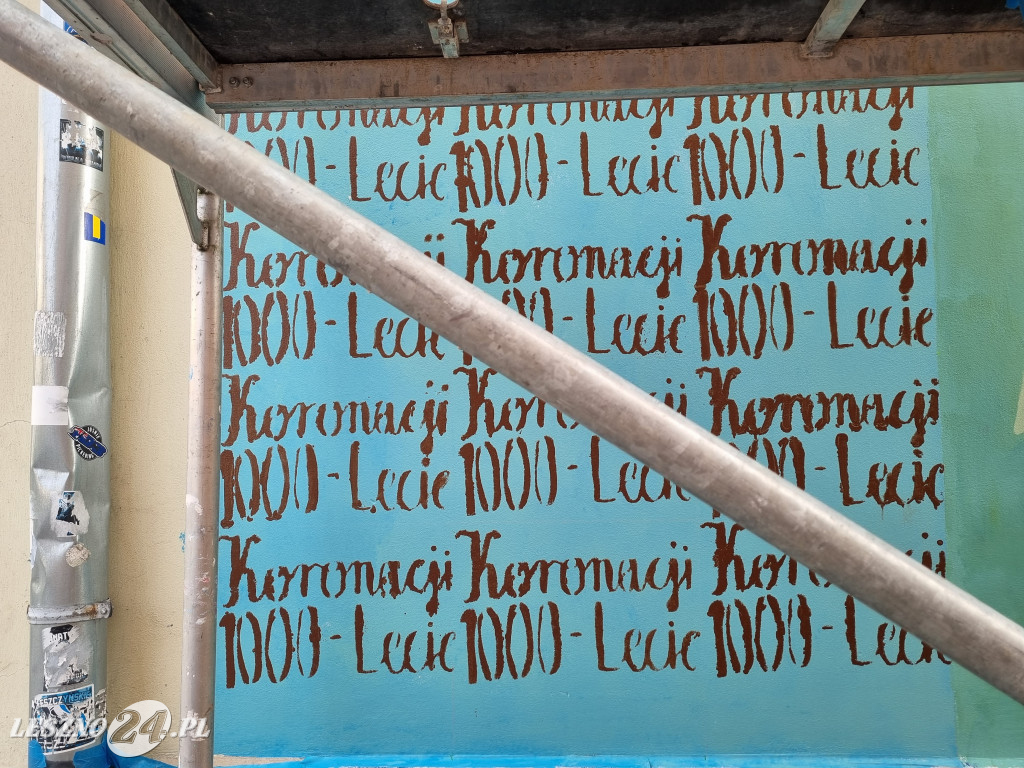 Koronacji Koronacji Koronacji
1000-Lecie 1000-Lecie 1000-Lecie
Koronacji Koronacji Koronacji
1000-Lecie 1000-Lecie 1000-Lecie
Koronacji Koronacji Koronacji
1000-Lecie 1000-Lecie 1000-Lecie
Koronacji Koronacji Koronacji
1000-Lecie 1000-Lecie 1000-Lecie
LESZNO24.PL